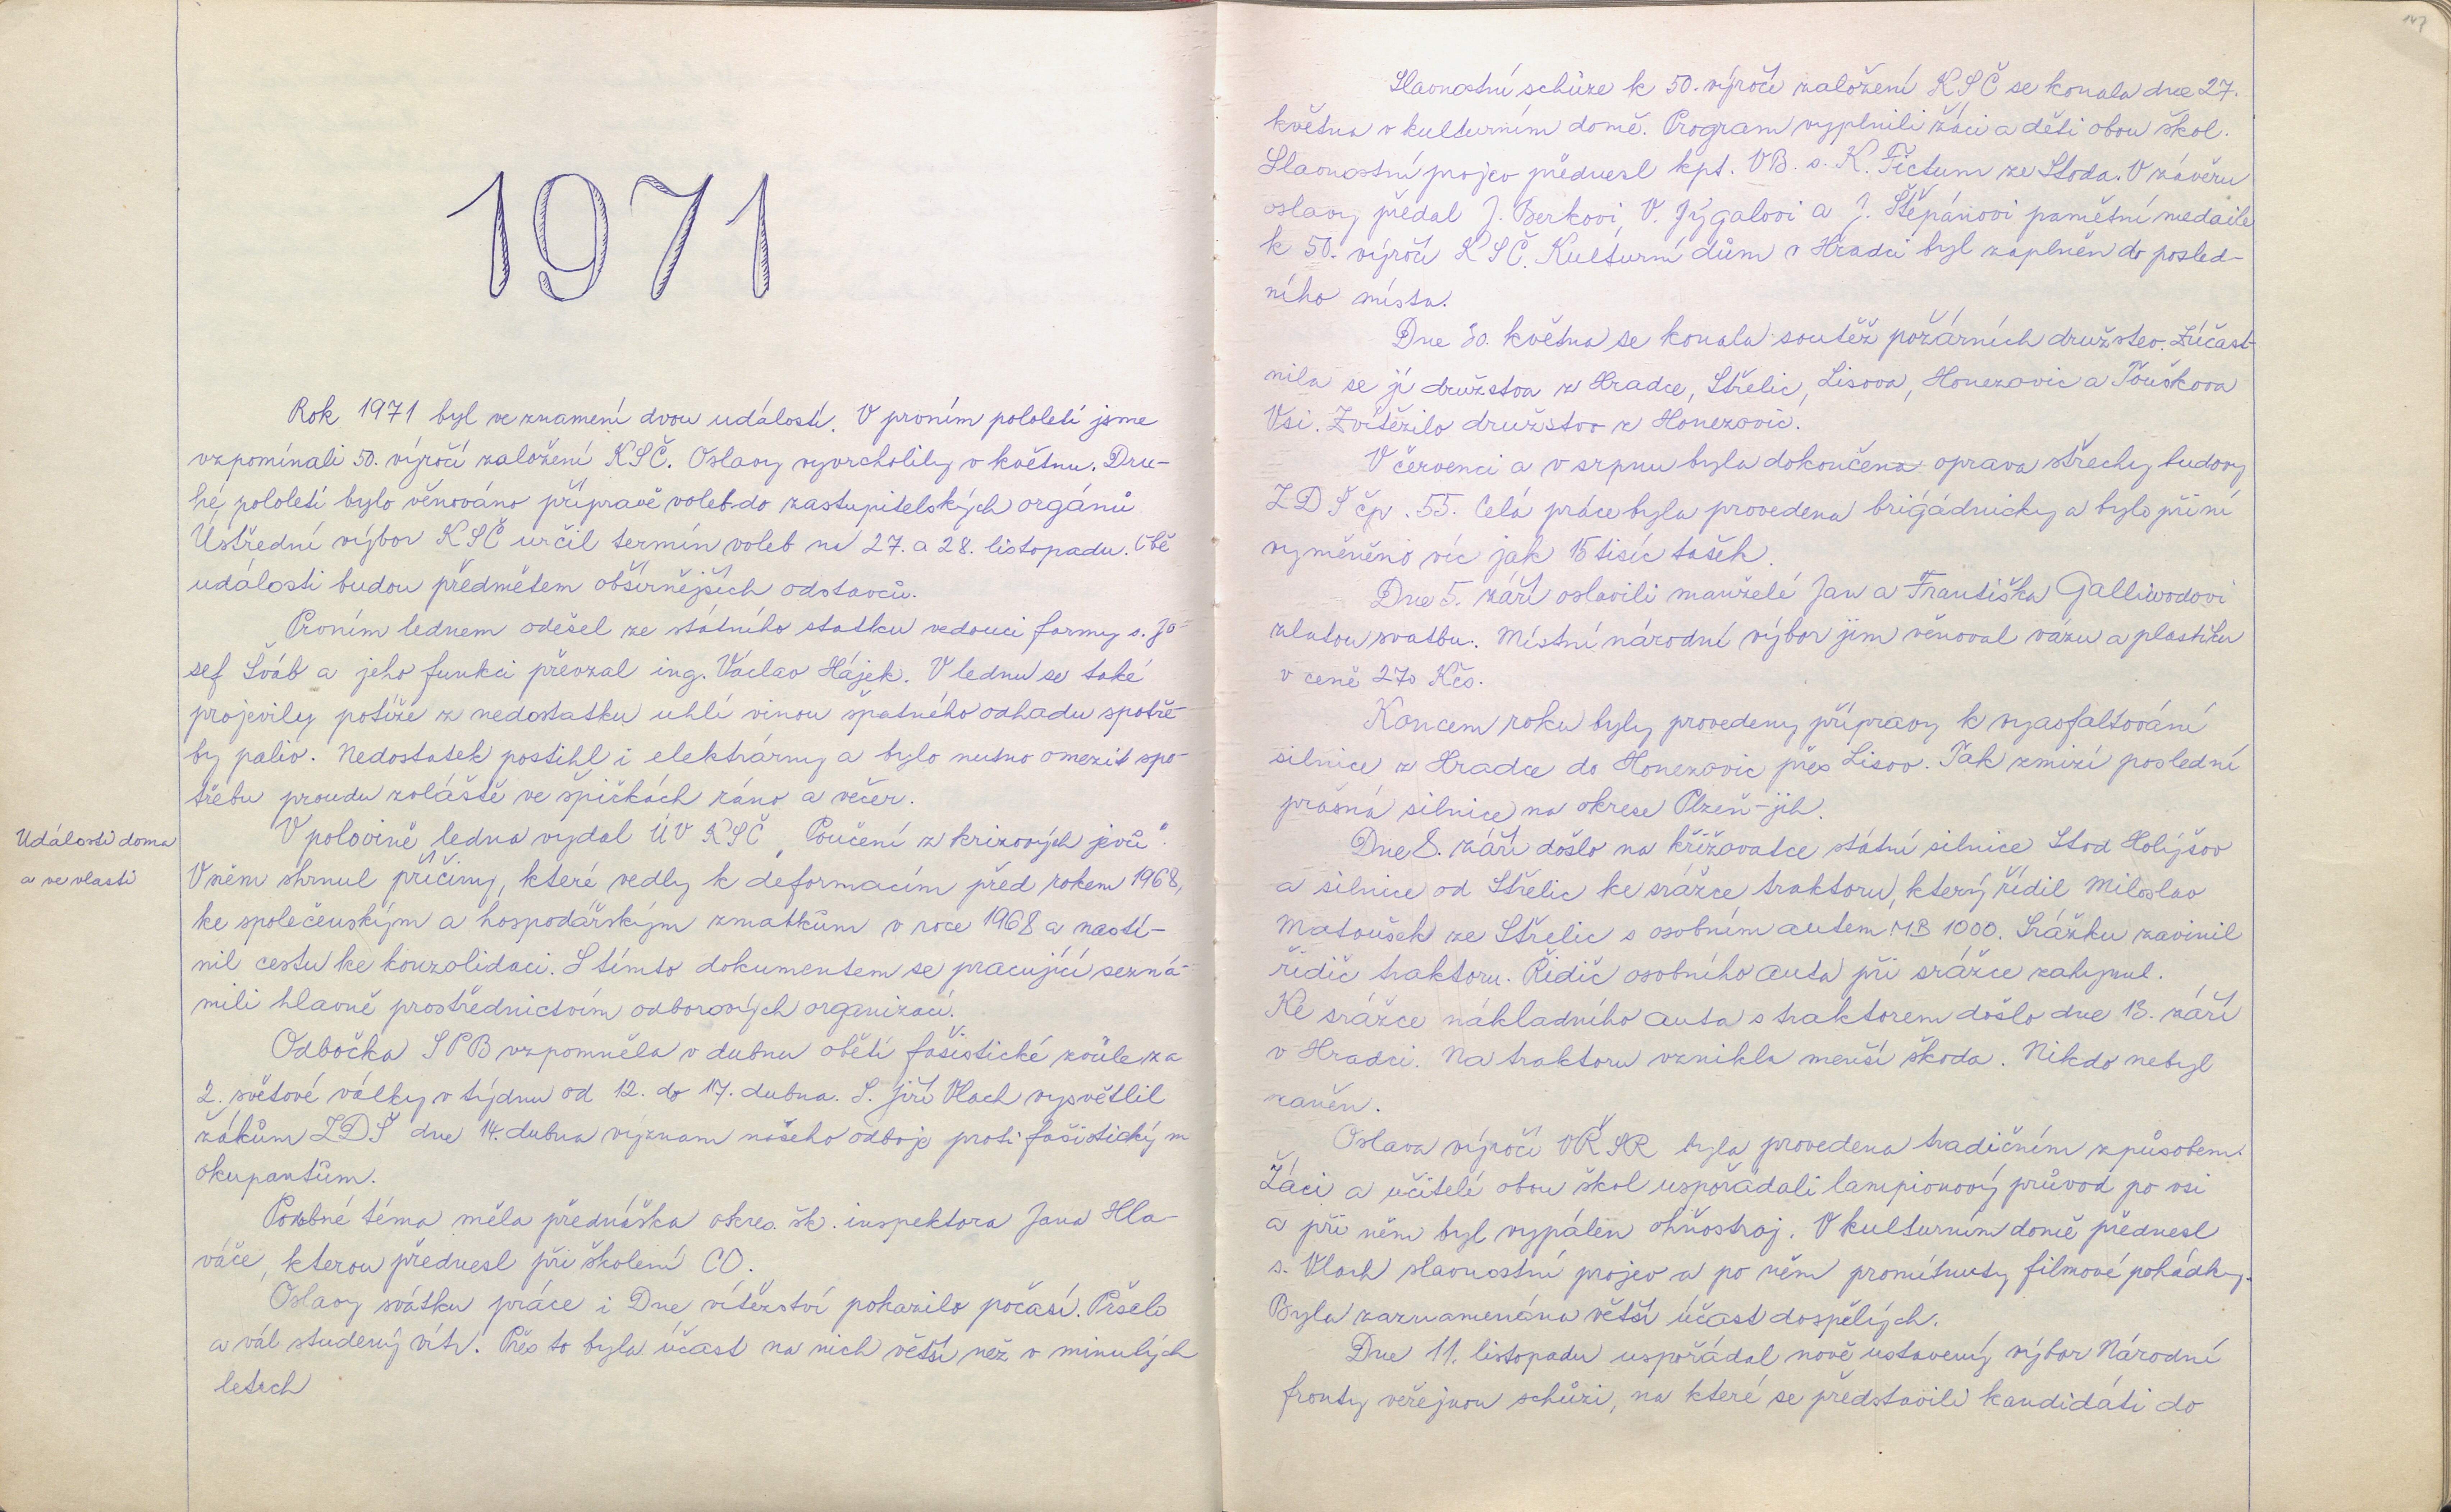 1971
Rok 1971 byl ve znamení dvou událostí. V prvním pololetí jsme
vzpomínali 50. výročí založení KSČ. Oslavy vyvrcholily v květnu. Dru-
hé pololetí bylo věnováno přípravě voleb do zastupitelských orgánů
Ústřední výbor KSČ určil termín voleb na 27. a 28. listopadu. Obě
události budou předmětem obšírnějších odstavců.
Prvním lednem odešel ze státního statku vedoucí farmy s. Jo-
sef Šváb a jeho funkci převzal ing. Václav Hájek. V lednu se také
projevily potíže z nedostatku uhlí vinou špatného odhadu spotře-
by paliv. Nedostatek postihl i elektrárny a bylo nutno omezit spo-
třebu proudu zvláště ve špičkách ráno a večer.
Události doma
a ve vlasti
V polovině ledna vydal ÚV KSČ „Poučení z krizových jevů".
V něm shrnul příčiny, které vedly k deformacím před rokem 1968,
ke společenským a hospodářským zmatkům v roce 1968 a nastí-
nil cestu ke konzolidaci. S tímto dokumentem se pracující sezná-
mili hlavně prostřednictvím odborových organizací.
Odbočka SPB vzpomněla v dubnu obětí fašistické zvůle za
2. světové války v týdnu od 12. do 17. dubna. S. Jiří Vlach vysvětlil
žákům ZDŠ dne 14. dubna význam našeho odboje proti fašistickým
okupantům.
Podobné téma měla přednáška okres. šk. inspektora Jana Hla-
váče, kterou přednesl při školení CO.
Oslavy svátku práce i Dne vítězství pokazilo počasí. Pršelo
a vál studený vítr. Přes to byla účast na nich větší než v minulých
letech
147
Slavnostní schůze k 50. výročí založení KSČ se konala dne 27.
května v kulturním domě. Program vyplnili žáci a děti obou škol.
Slavnostní projev přednesl kpt. VB. s. K. Fictum ze Stoda. V závěru
oslavy předal J. Berkovi, V. Jýgalovi a J. Štěpánovi pamětní medaile
k 50. výročí KSČ. Kulturní dům v Hradci byl zaplněn do posled-
ního místa.
Dne 30. května se konala soutěž požárních družstev. Zúčast-
nila se jí družstva z Hradce, Střelic, Lisova, Honezovic a Touškova
Vsi. Zvítězilo družstvo z Honezovic.
V červenci a v srpnu byla dokončena oprava střechy budovy
ZDŠ čp. 55. Celá práce byla provedena brigádnicky a bylo při ní
vyměněno víc jak 15 tisíc tašek.
Dne 5. září oslavili manželé Jan a Františka Galliwodovi
zlatou svatbu. Místní národní výbor jim věnoval vázu a plastiku
v ceně 270 Kčs.
Koncem roku byly provedeny přípravy k vyasfaltování
silnice z Hradce do Honezovic přes Lisov. Tak zmizí poslední
prašná silnice na okrese Plzeň-jih.
Dne 8. září došlo na křižovatce státní silnice Stod Holýšov
a silnice od Střelic ke srážce traktoru, který řídil Miloslav
Matoušek ze Střelic s osobním autem MB 1000. Srážku zavinil
řidič traktoru. Řidič osobního auta při srážce zahynul.
Ke srážce nákladního auta s traktorem došlo dne 13. září
v Hradci. Na traktoru vznikla menší škoda. Nikdo nebyl
raněn.
Oslava výročí VŘSR byla provedena tradičním způsobem.
Žáci a učitelé obou škol uspořádali lampionový průvod po vsi
a při něm byl vypálen ohňostroj. V kulturním domě přednesl
s. Vlach slavnostní projev a po něm promítnuty filmové pohádky.
Byla zaznamenána větší účast dospělých.
Dne 11. listopadu uspořádal nově ustavený výbor Národní
fronty veřejnou schůzi, na které se představili kandidáti do